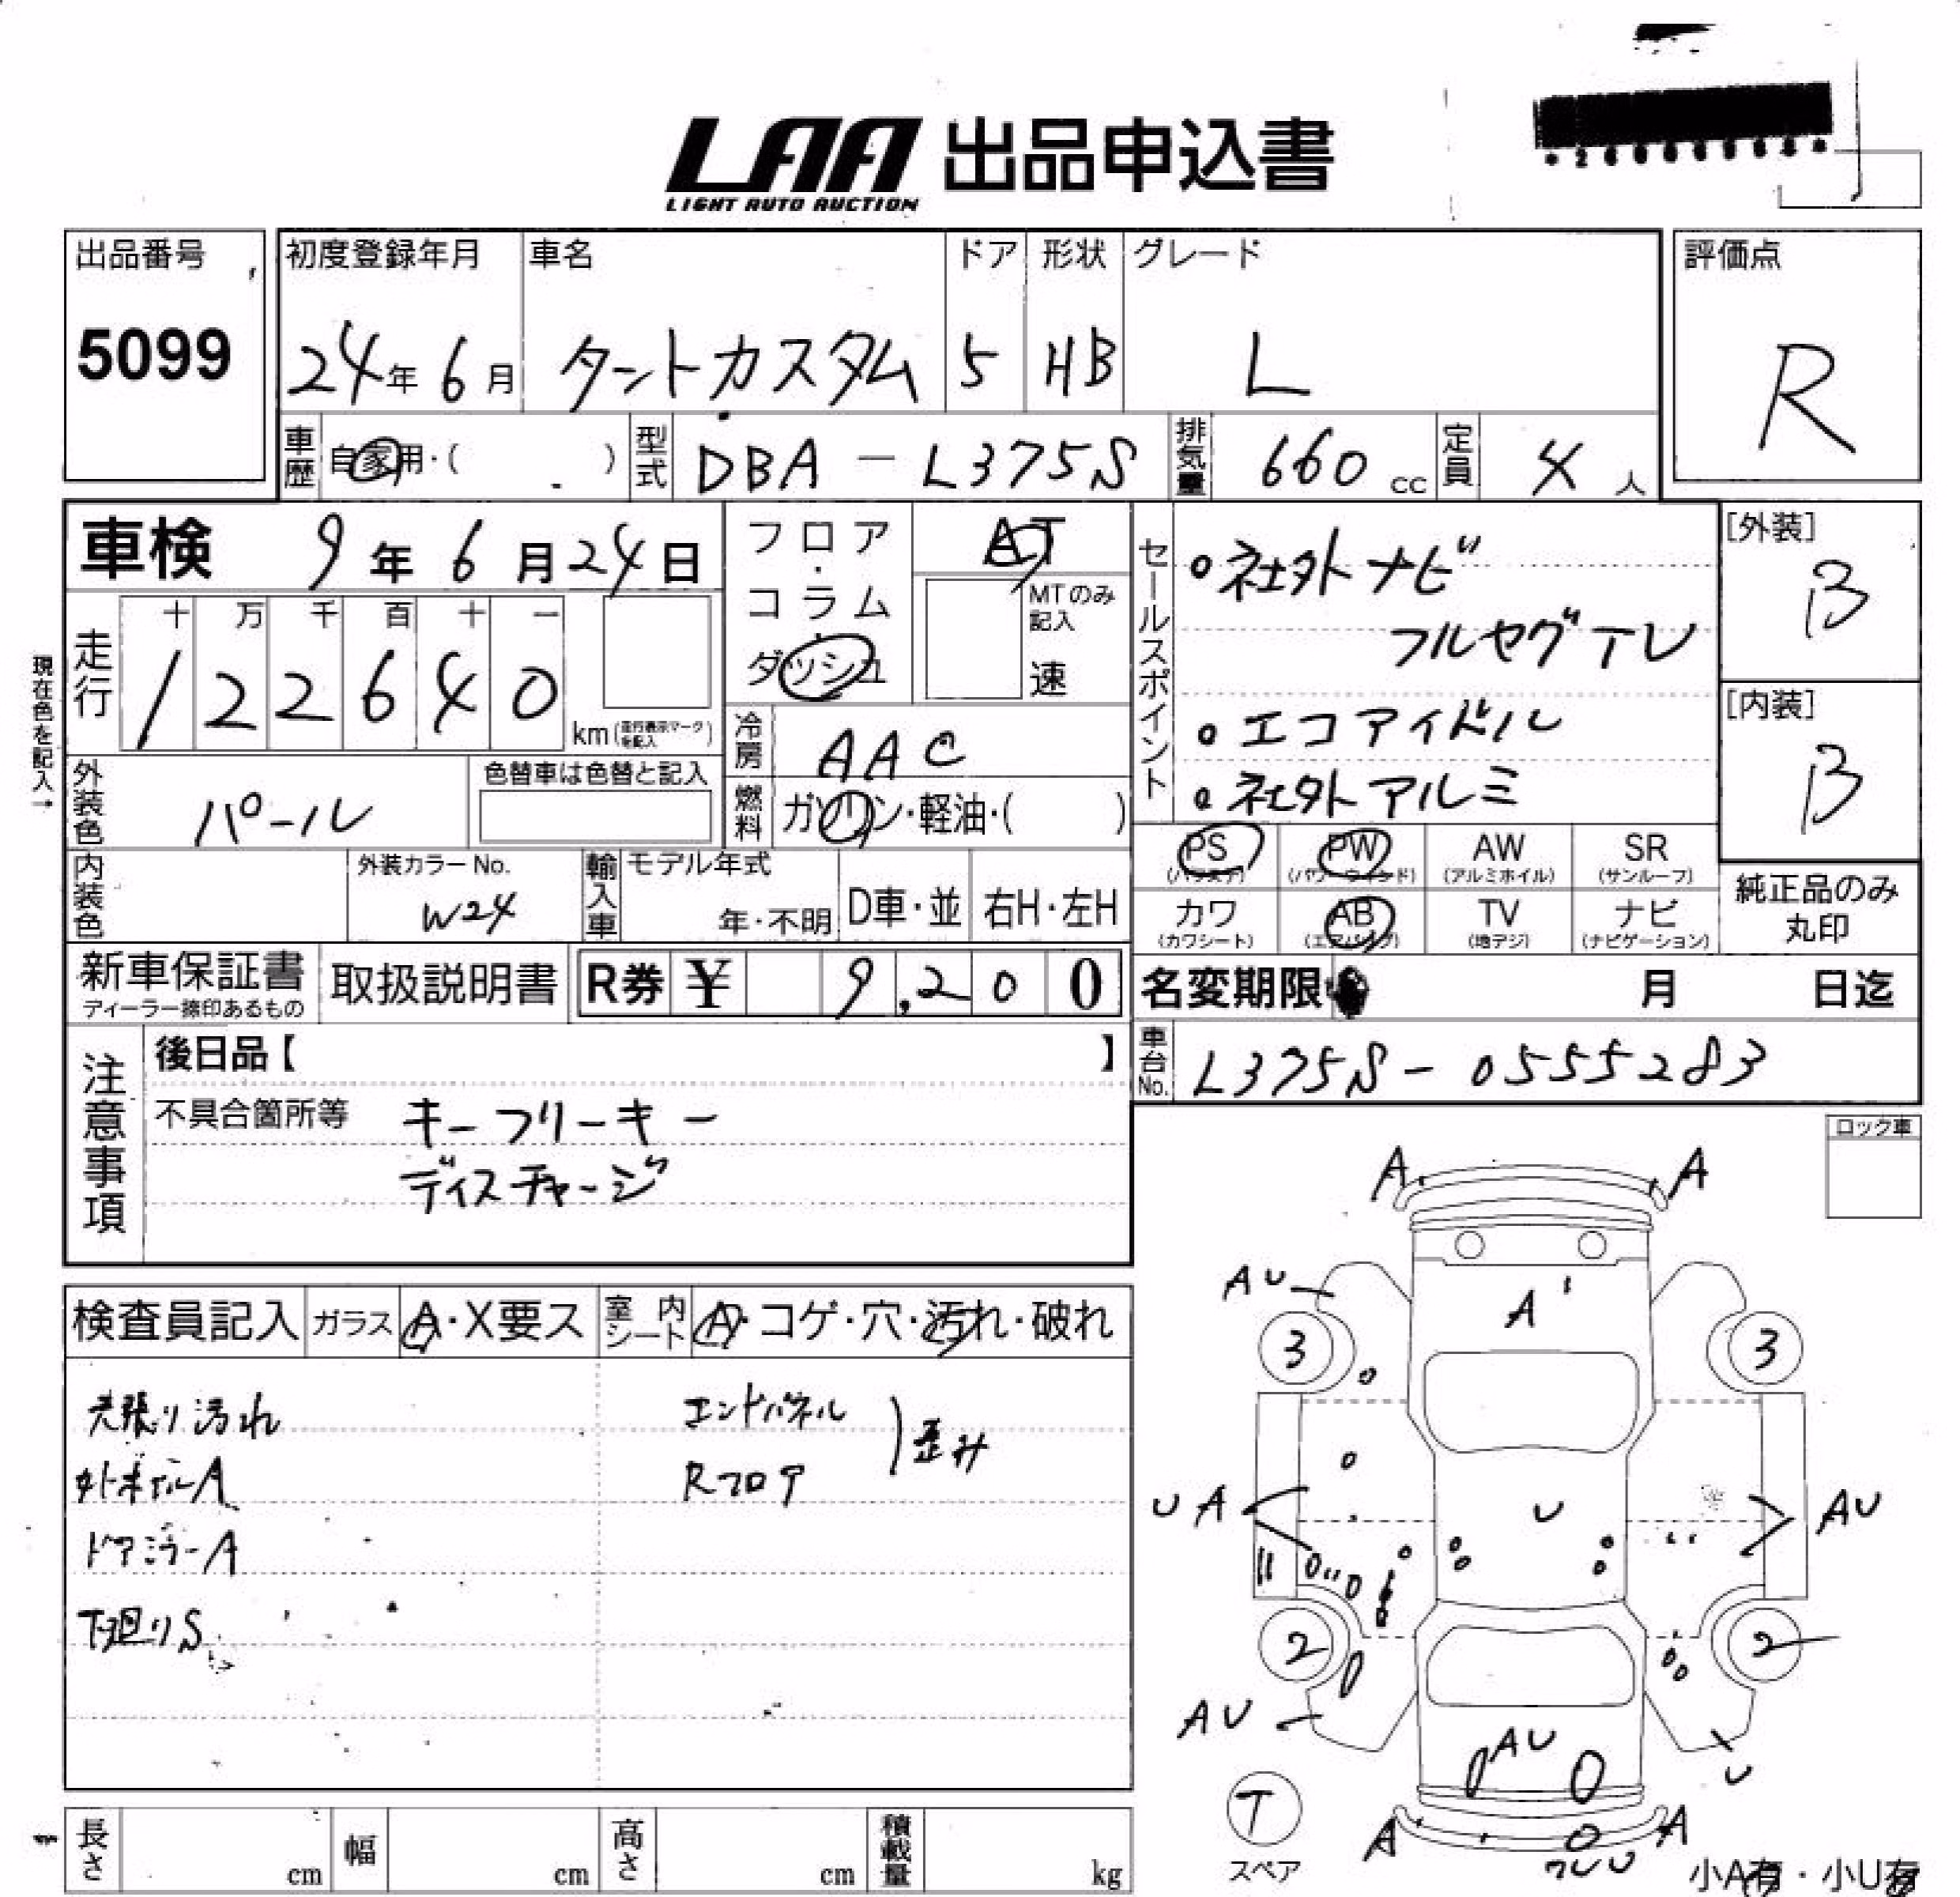 LAA 出品申込書
LIGHT AUTO AUCTION
出品番号
5099
初度登録年月
24年6月
車名
タントカスタム
ドア
5
形状
HB
グレード
L
評価点
R
車歴 自家用・( )
型式 DBA-L375S
排気量 660cc
定員 4人
車検 9年6月24日
フロア・コラム・ダッシュ
AT
MTのみ記入
速
現在色を記入→
走行
十 万 千 百 十 一
122640
km(走行表示マークを記入)
冷房 AAC
外装色 パール
色替車は色替と記入
燃料 ガソリン・軽油・( )
内装色
外装カラーNo.
W24
輸入車
モデル年式
年・不明
D車・並
右H・左H
セールスポイント
社外ナビ
フルセグTV
エコアイドル
社外アルミ
[外装]
B
[内装]
B
PS
(パワステ)
PW
(パワーウインド)
AW
(アルミホイル)
SR
(サンルーフ)
カワ
(カワシート)
AB
(エアバッグ)
TV
(地デジ)
ナビ
(ナビゲーション)
純正品のみ
丸印
新車保証書
ディーラー捺印あるもの
取扱説明書
R券 ¥ 9,200
名変期限 月 日迄
車台No. L375S-0555283
注意事項
後日品【 】
不具合箇所等 キーフリーキー
ディスチャージ
ロック車
検査員記入
ガラス A・X要ス
室内シート A・コゲ・穴・汚れ・破れ
天張り汚れ
外ホイルA
ドアミラーA
下廻りS
エンドパネル
Rフロア
歪み
A A
AU
A
3 3
UA
U
AU
2 2
AU
AU
U
T
スペア
A A
ワレU
小A有・小U有
長さ cm
幅 cm
高さ cm
積載量 kg